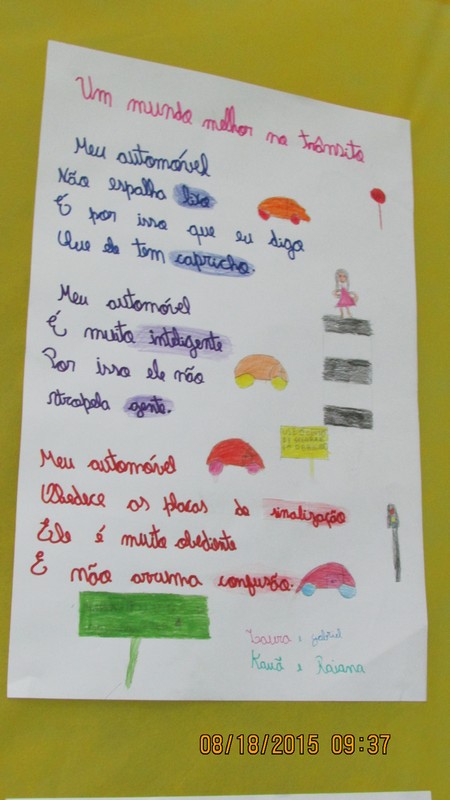 Um mundo melhor no trânsito
Meu automóvel
Não espalha lixo
E por isso que eu digo
Que ele tem capricho.
Meu automóvel
É muito inteligente
Por isso ele não
Atropela gente.
Meu automóvel
Obedece as placas de sinalização
Ele é muito obediente
E não arruma confusão.
Laura e gabriel
Kauã e Raiana
08/18/2015 09:37